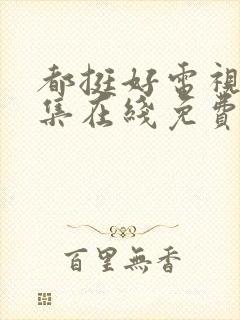 都挺好電視
集在綫免費
百里無香